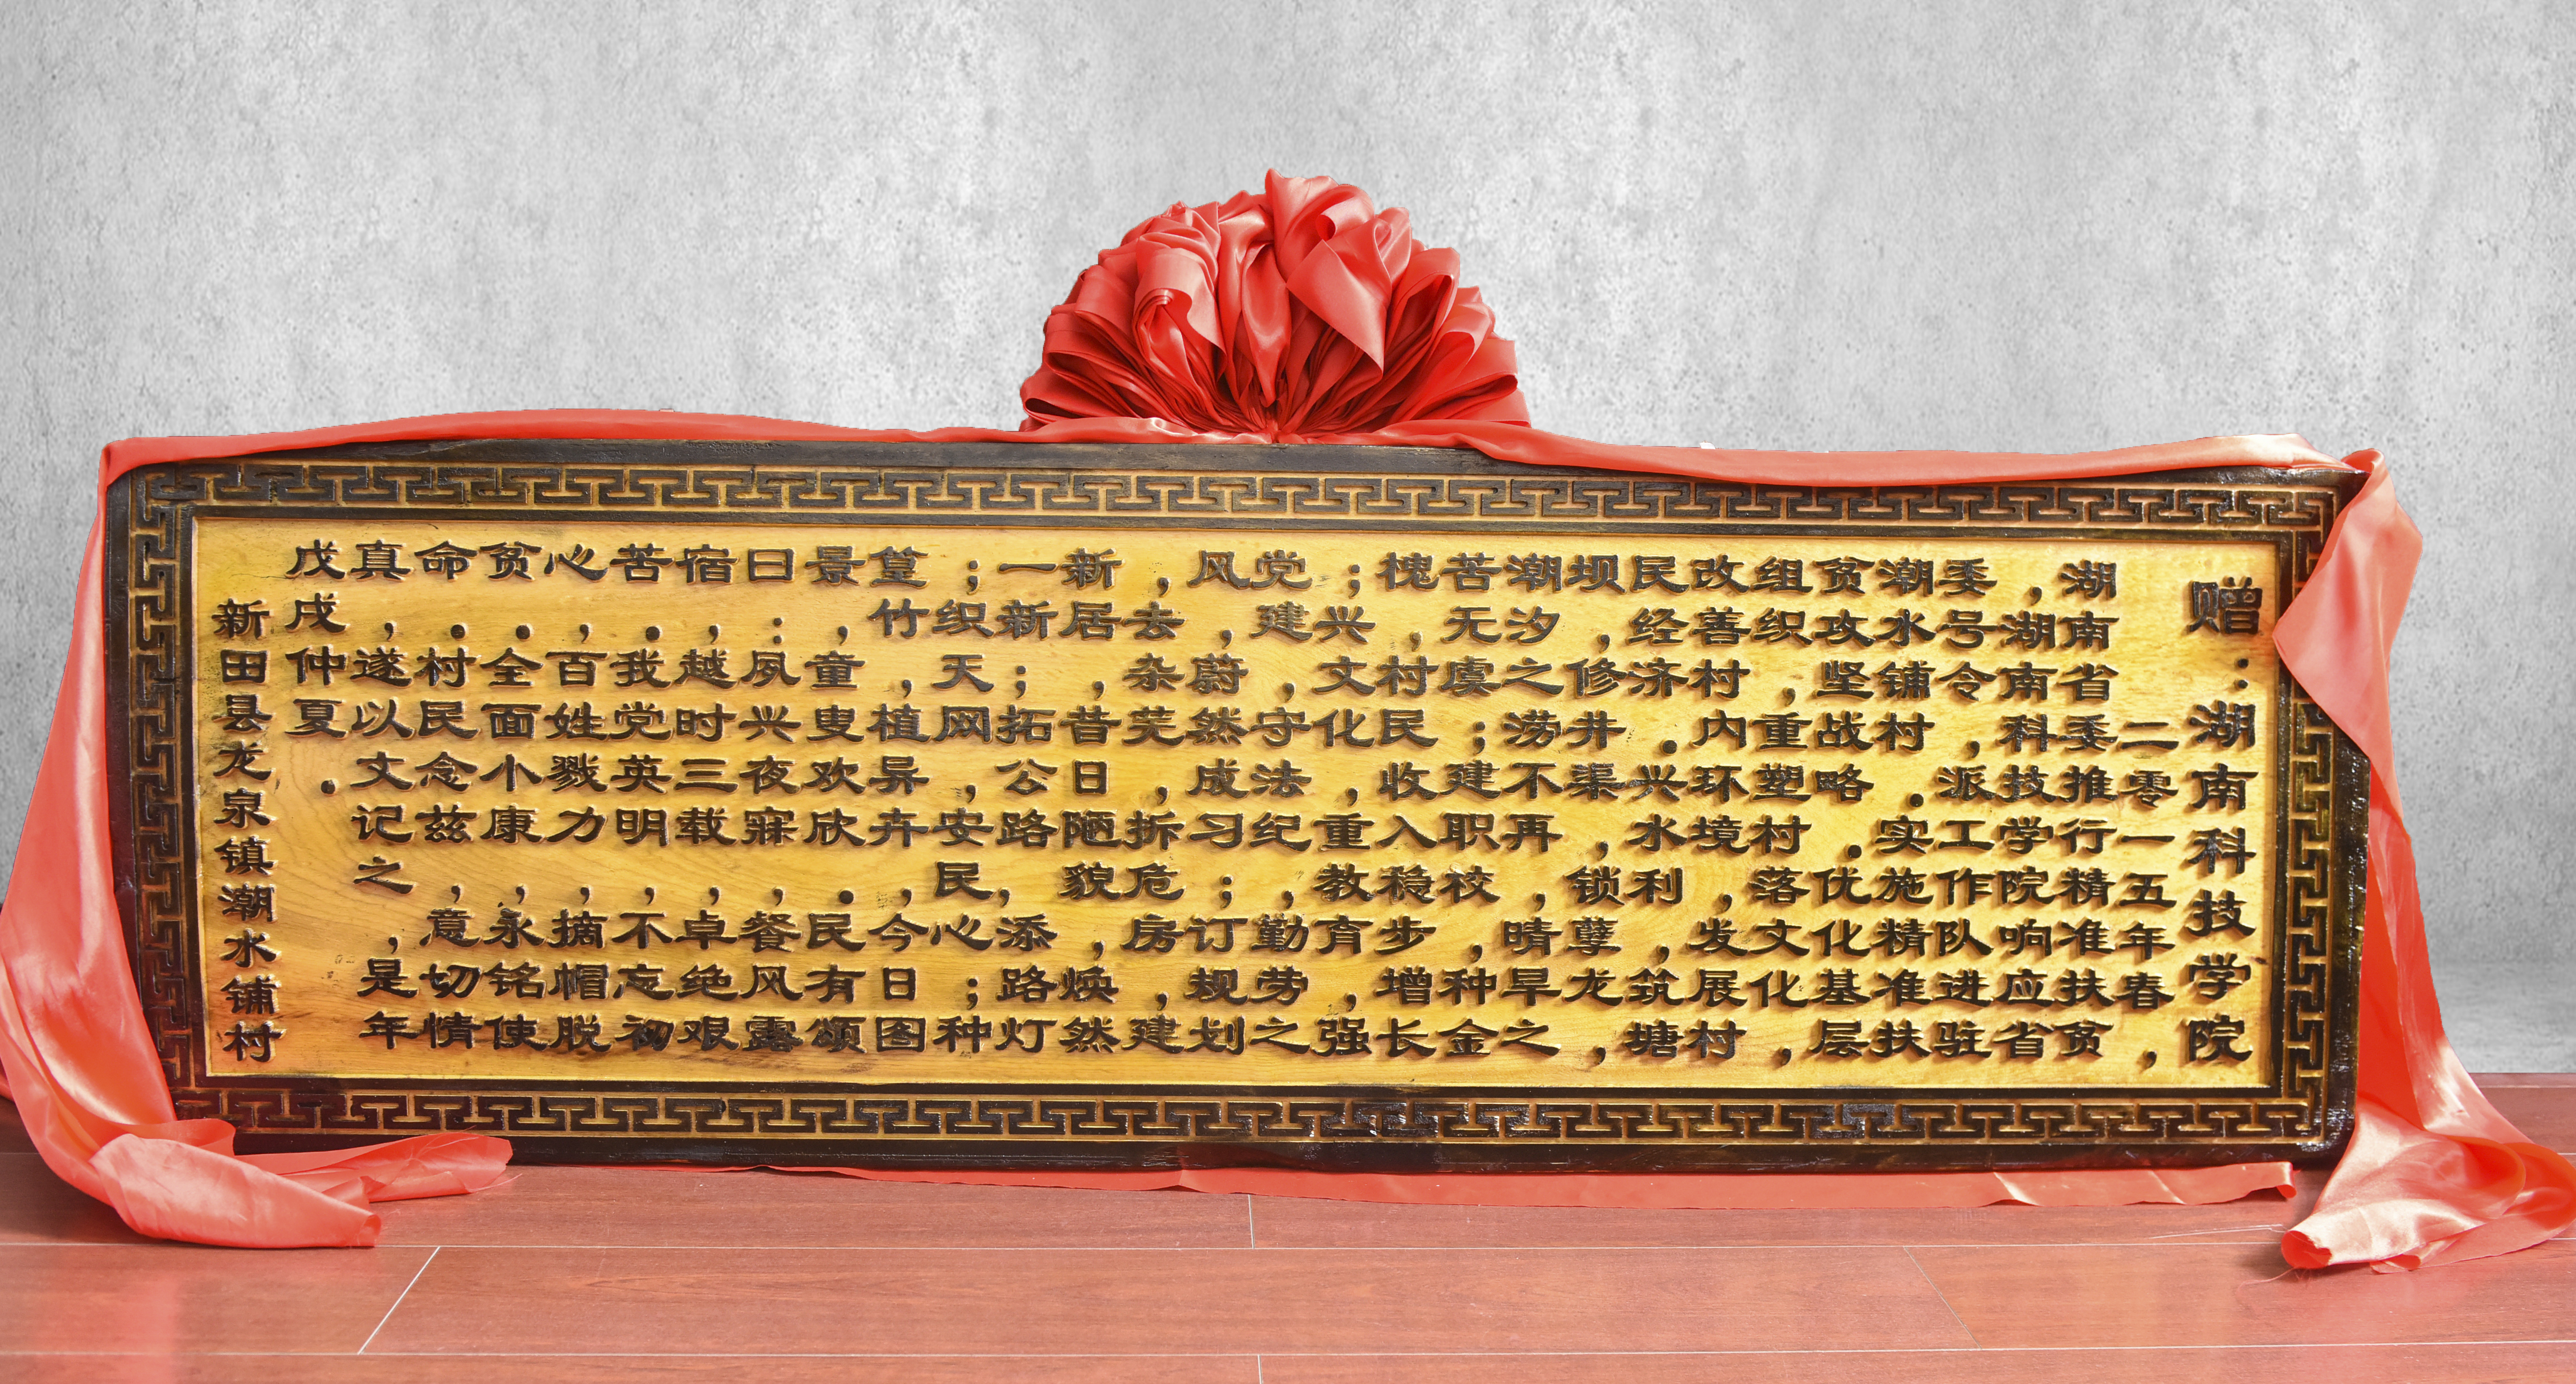 赠：湖南科技学院
二零一五年春，
湖南省委推行精准扶贫
，湖南科技学院响应省
委号令，派工作队进驻
潮水铺村。实施精准扶
贫攻坚战略。优化基层
组织，重塑村落文化，
改善村内环境，发展村
民经济。兴水利，筑塘
坝，修井渠，锁孽龙，
潮汐之涝不再，晴旱之
苦无虞；建职校，种金
槐，村民收入稳步增长
；兴文化，重教育，强
党建，守法纪，勤劳之
风，蔚然成习；订规划
，去杂芜，拆危房，建
新居，昔日陋貌，焕然
一新；拓公路，添路灯
；织天网，安民心；种
篁竹，植异卉，今日图
景，童叟欢欣。民有颂
曰：夙兴夜寐，餐风露
宿，越时三载，卓绝艰
苦。我党英明，不忘初
心，百姓戮力，摘帽脱
贫。全面小康，永铭使
命。村民念兹，意切情
真，遂以文记之，是年
戊戌仲夏。
新田县龙泉镇潮水铺村